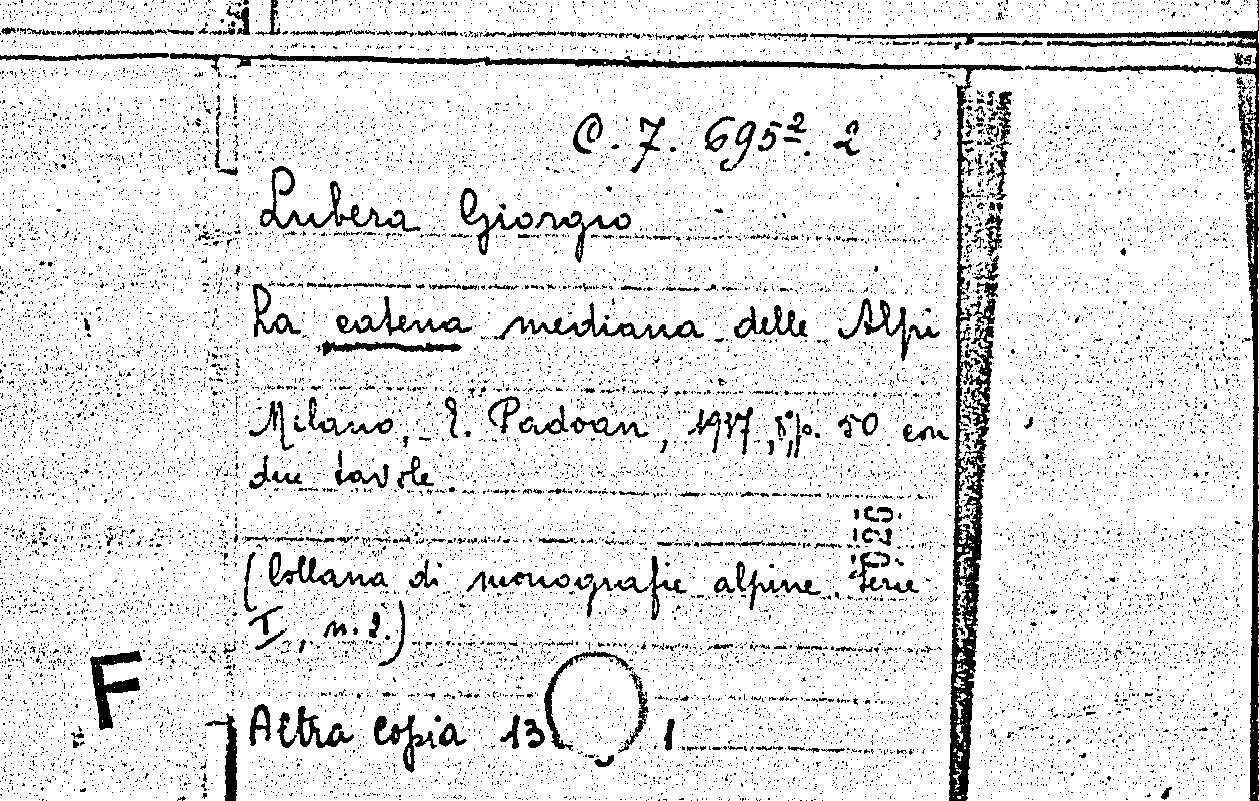 C. 7. 695². 2
Lubera Giorgio
La catena mediana delle Alpi
Milano, E. Padoan, 1937, 8°, p. 50 con
due tavole.
(Collana di monografie alpine. Serie
I, n. 2.)
F
Altra copia 13